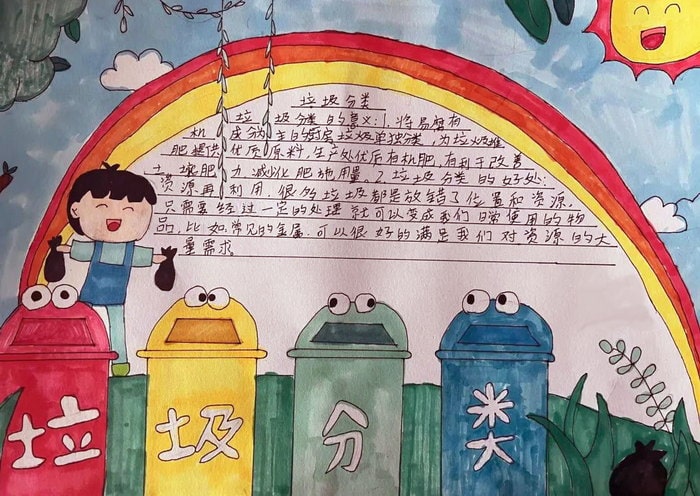 垃圾分类
垃圾分类的意义:1、将易腐有
机成分为主的厨房垃圾单独分类,为垃圾堆
肥提供优质原料,生产处优质有机肥,有利于改善
土壤肥力,减少化肥施用量.2垃圾分类的好处:
资源再利用.很多垃圾都是放错了位置和资源.
只需要经过一定的处理就可以变成我们日常使用的物
品,比如:常见的金属.可以很好的满足我们对资源的大
量需求
垃圾分类